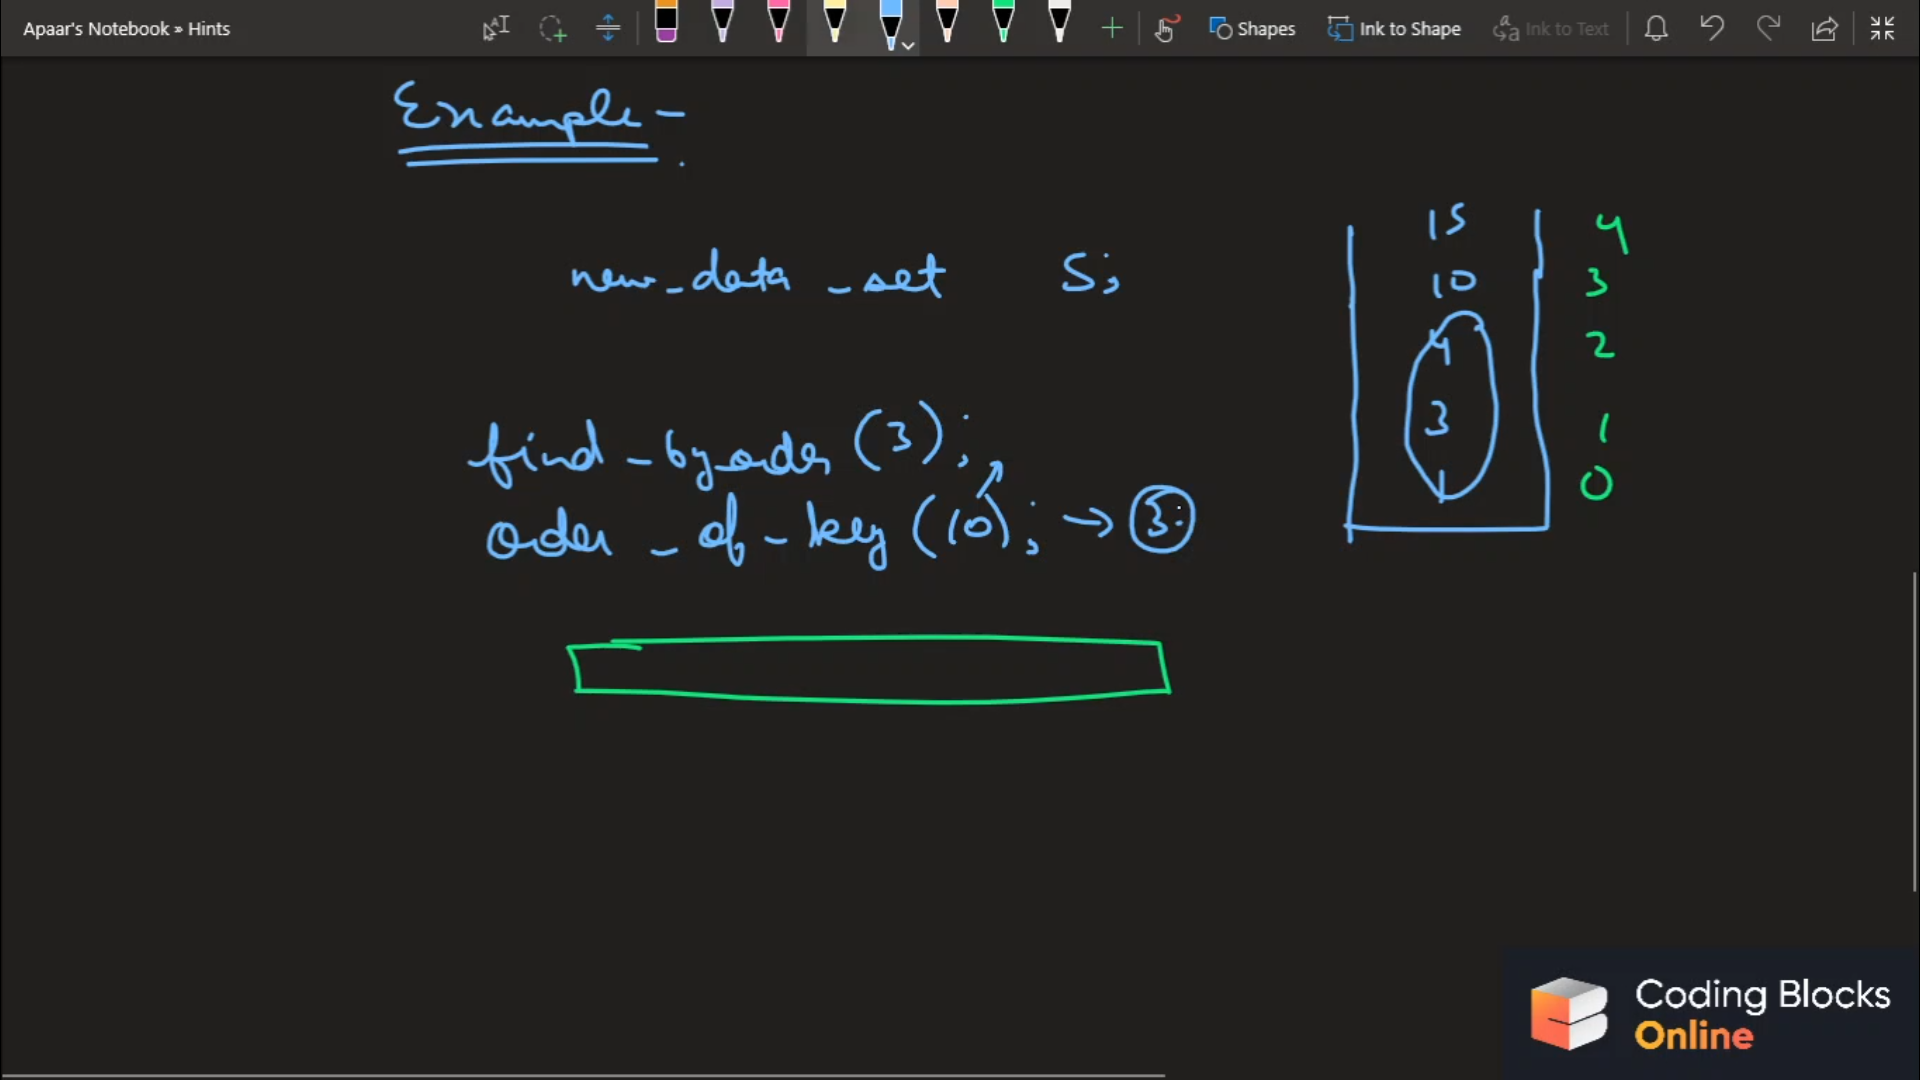 Apaar's Notebook » Hints
Shapes
Ink to Shape
Ink to Text
Example -
new_data_set S;
15 4
10 3
4 2
3 1
1 0
find_by_order (3);
order_of_key (10); → 3
Coding Blocks
Online